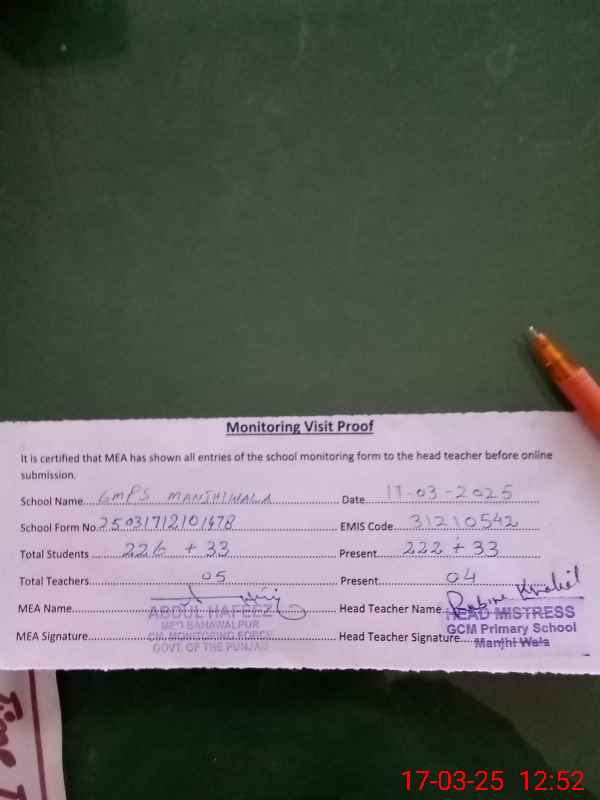 Monitoring Visit Proof
It is certified that MEA has shown all entries of the school monitoring form to the head teacher before online
submission.
School Name....GMPS MANJHIWALA.... Date....17-03-2025....
School Form No.25031712101478.... EMIS Code....31210542....
Total Students....226 + 33.... Present....222 + 33....
Total Teachers....05.... Present....04....
MEA Name....ABDUL HAFEEZ.... Head Teacher Name....Rubina
HEAD MISTRESS
MEO BAHAWALPUR
GCM Primary School
MEA Signature....CM. MONITORING FORCE.... Head Teacher Signature....Manjhi Wala
GOVT. OF THE PUNJAB
Time
17-03-25 12:52